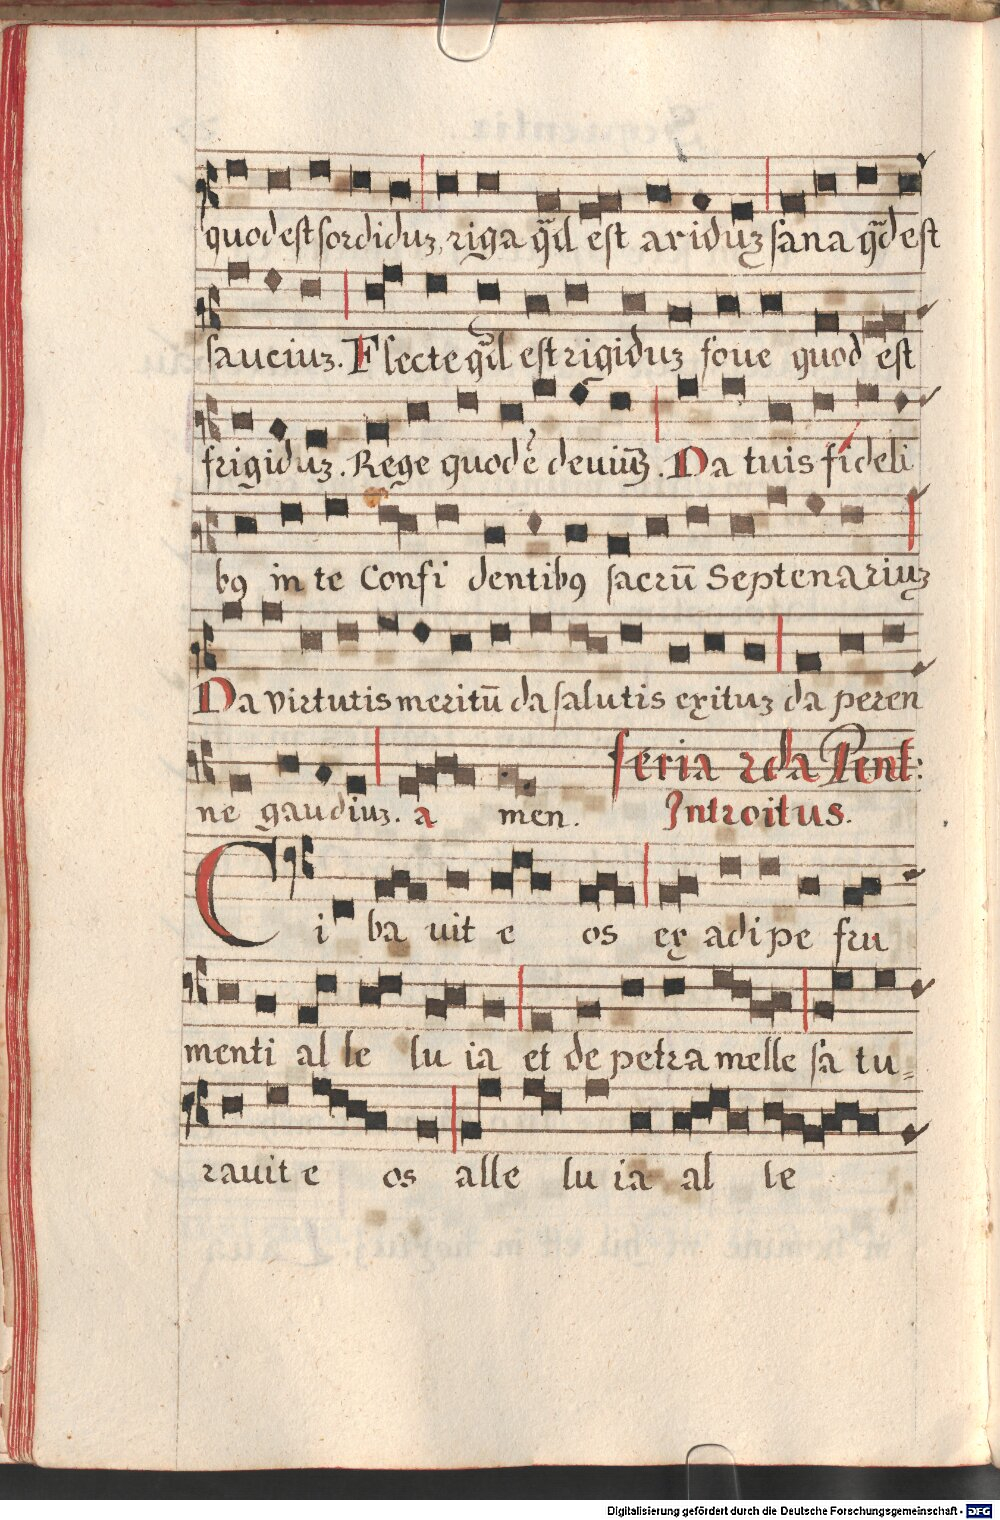 quod est sordiduʒ, riga qd̃ est ariduʒ sana qd̃ est
sauciuʒ. Flecte qd̃ est rigiduʒ foue quod est
frigiduʒ. Rege quod ē deuiũʒ. Da tuis fideli
bꝯ in te Confi dentibꝯ sacrũ Septenariuʒ
Da virtutis meritũ da salutis exituʒ da peren
ne gaudiuʒ. a men.
feria 2da Pent:
Introitus.
Ci ba uit e os ex adipe fru
menti al le lu ia et de petra melle sa tu=
rauit e os alle lu ia al le
Digitalisierung gefördert durch die Deutsche Forschungsgemeinschaft - DFG